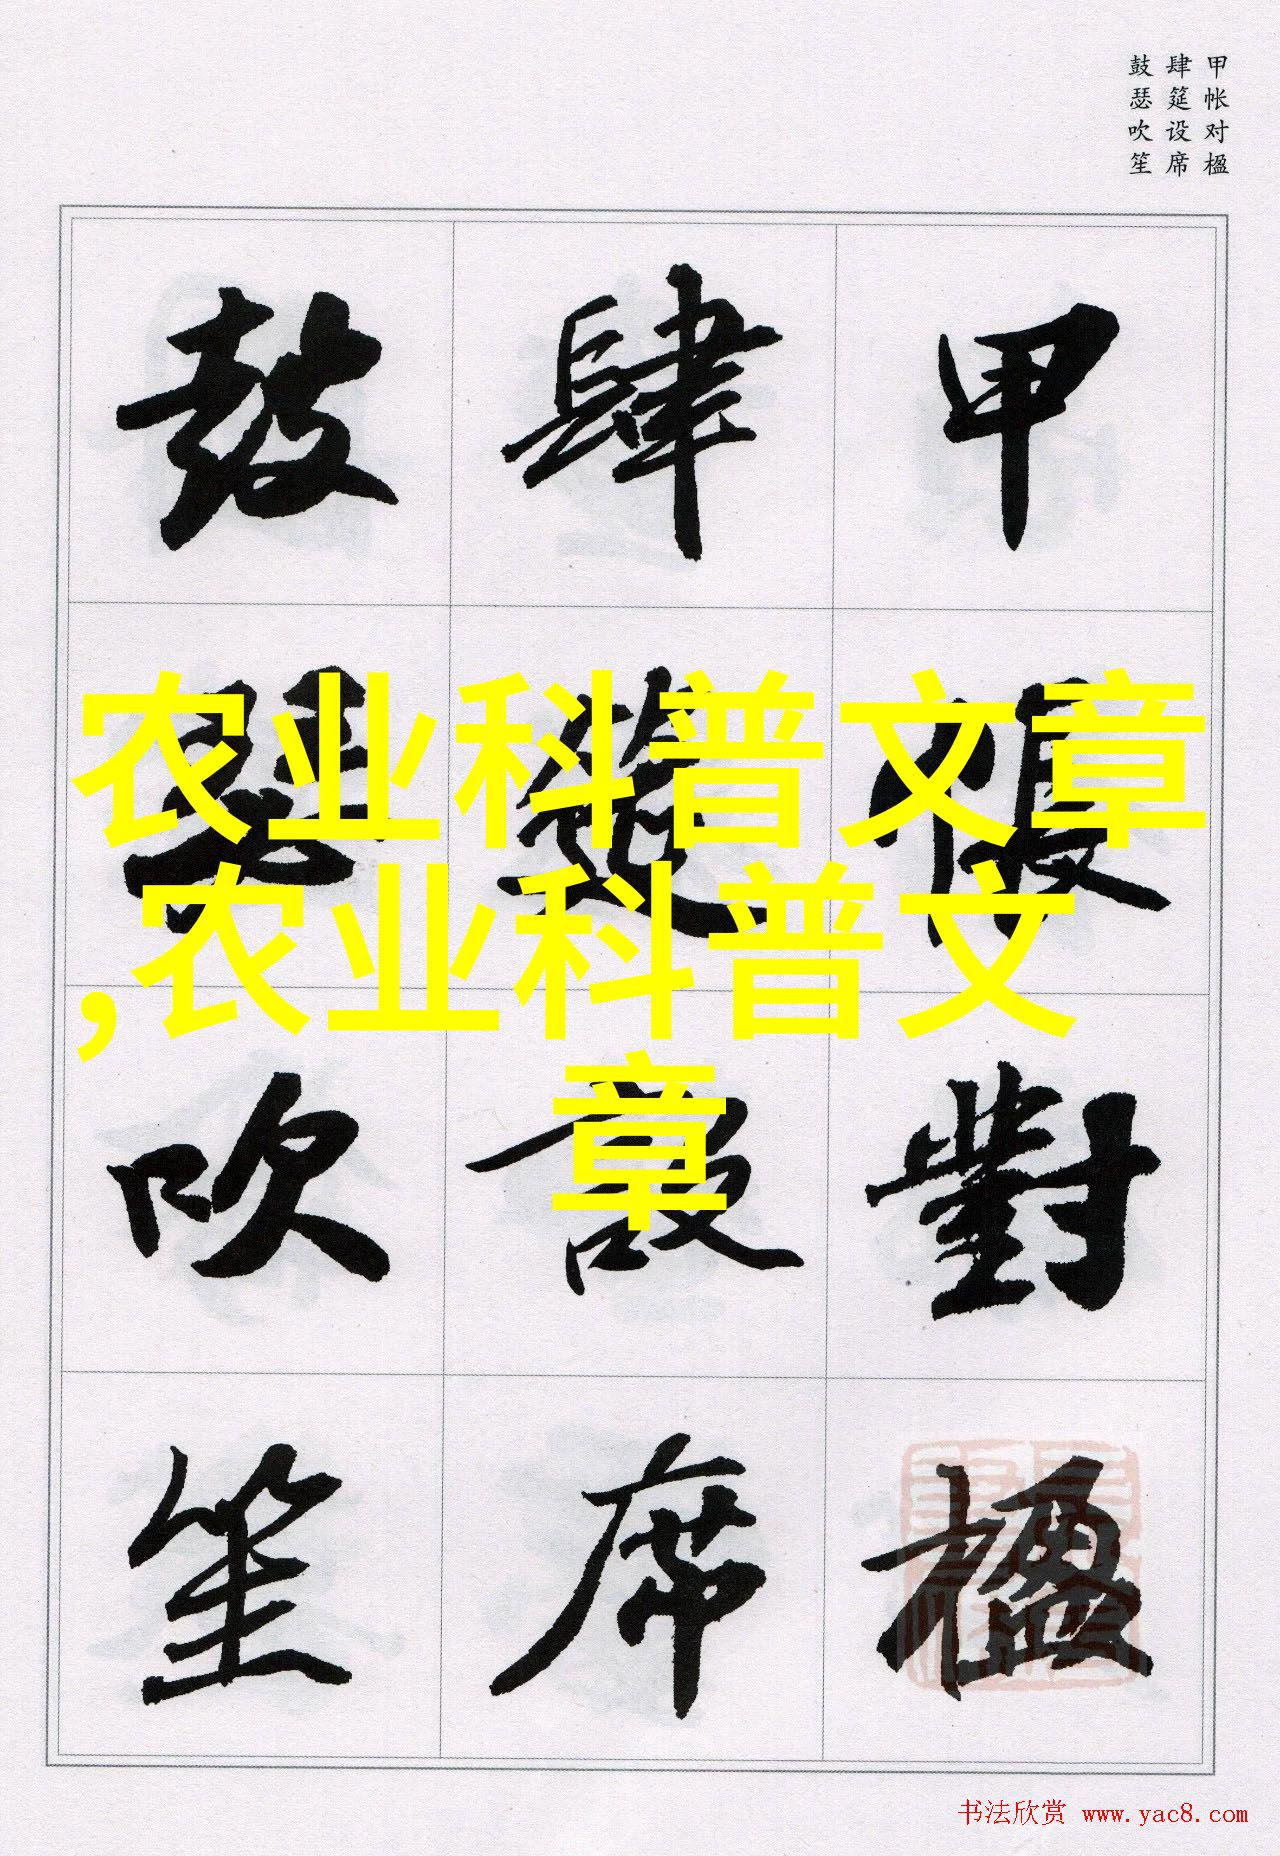 甲帐对楹
肆筵设席
鼓瑟吹笙
甲帳對楹
肆筵設席
鼓瑟吹笙
农业科普文章
,农业科普文
章
书法欣赏 www.yac8.com